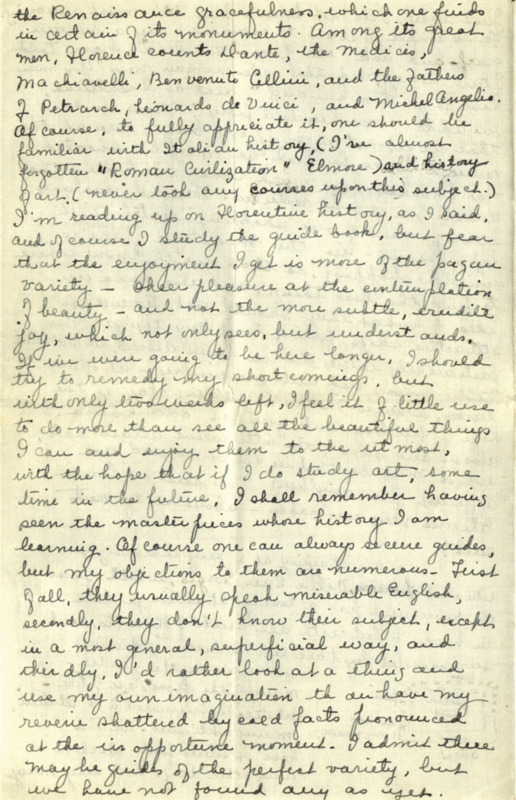 the Renaissance gracefulness, which one finds
in certain of its monuments. Among its great
men, Florence counts Dante, the Medicis,
Machiavelli, Benvenuto Cellini, and the fathers
of Petrarch, Leonardo de Vinci, and Michel Angelio.
Of course, to fully appriciate it, one should be
familiar with Italian history, (I've almost
forgotten "Roman Civilization" Elmore) and history
of art. (never took any courses upon this subject.)
I'm reading up on Florentine history, as I said,
and of course I study the guide book, but fear
that the enjoyment I get is more of the pagan
variety - sheer pleasure at the contemplation
of beauty - and not the more subtle, erudite
joy, which not only sees, but understands.
If we were going to be here longer, I should
try to remedy my shortcomings, but
with only two weeks left, I feel it of little use
to do more than see all the beautiful things
I can and enjoy them to the utmost,
with the hope that if I do study art, some
time in the future, I shall remember having
seen the masterpieces whose history I am
learning. Of course one can always secure guides,
but my objections to them are numerous - First
of all, they usually speak miserable English,
secondly, they don't know their subject, except
in a most general, superficial way, and
thirdly, I'd rather look at a thing and
use my own imagination than have my
reverie shattered by cold facts pronounced
at the inopportune moment. I admit there
may be guides of the perfect variety, but
we have not found any as yet.